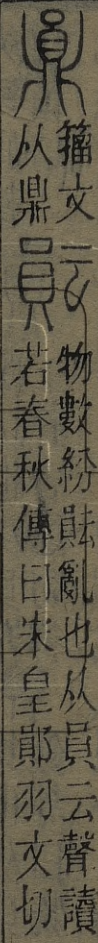 鼏
籀文
从鼎
物數紛亂也从員云聲讀
若春秋傳曰宋皇鄖羽文切